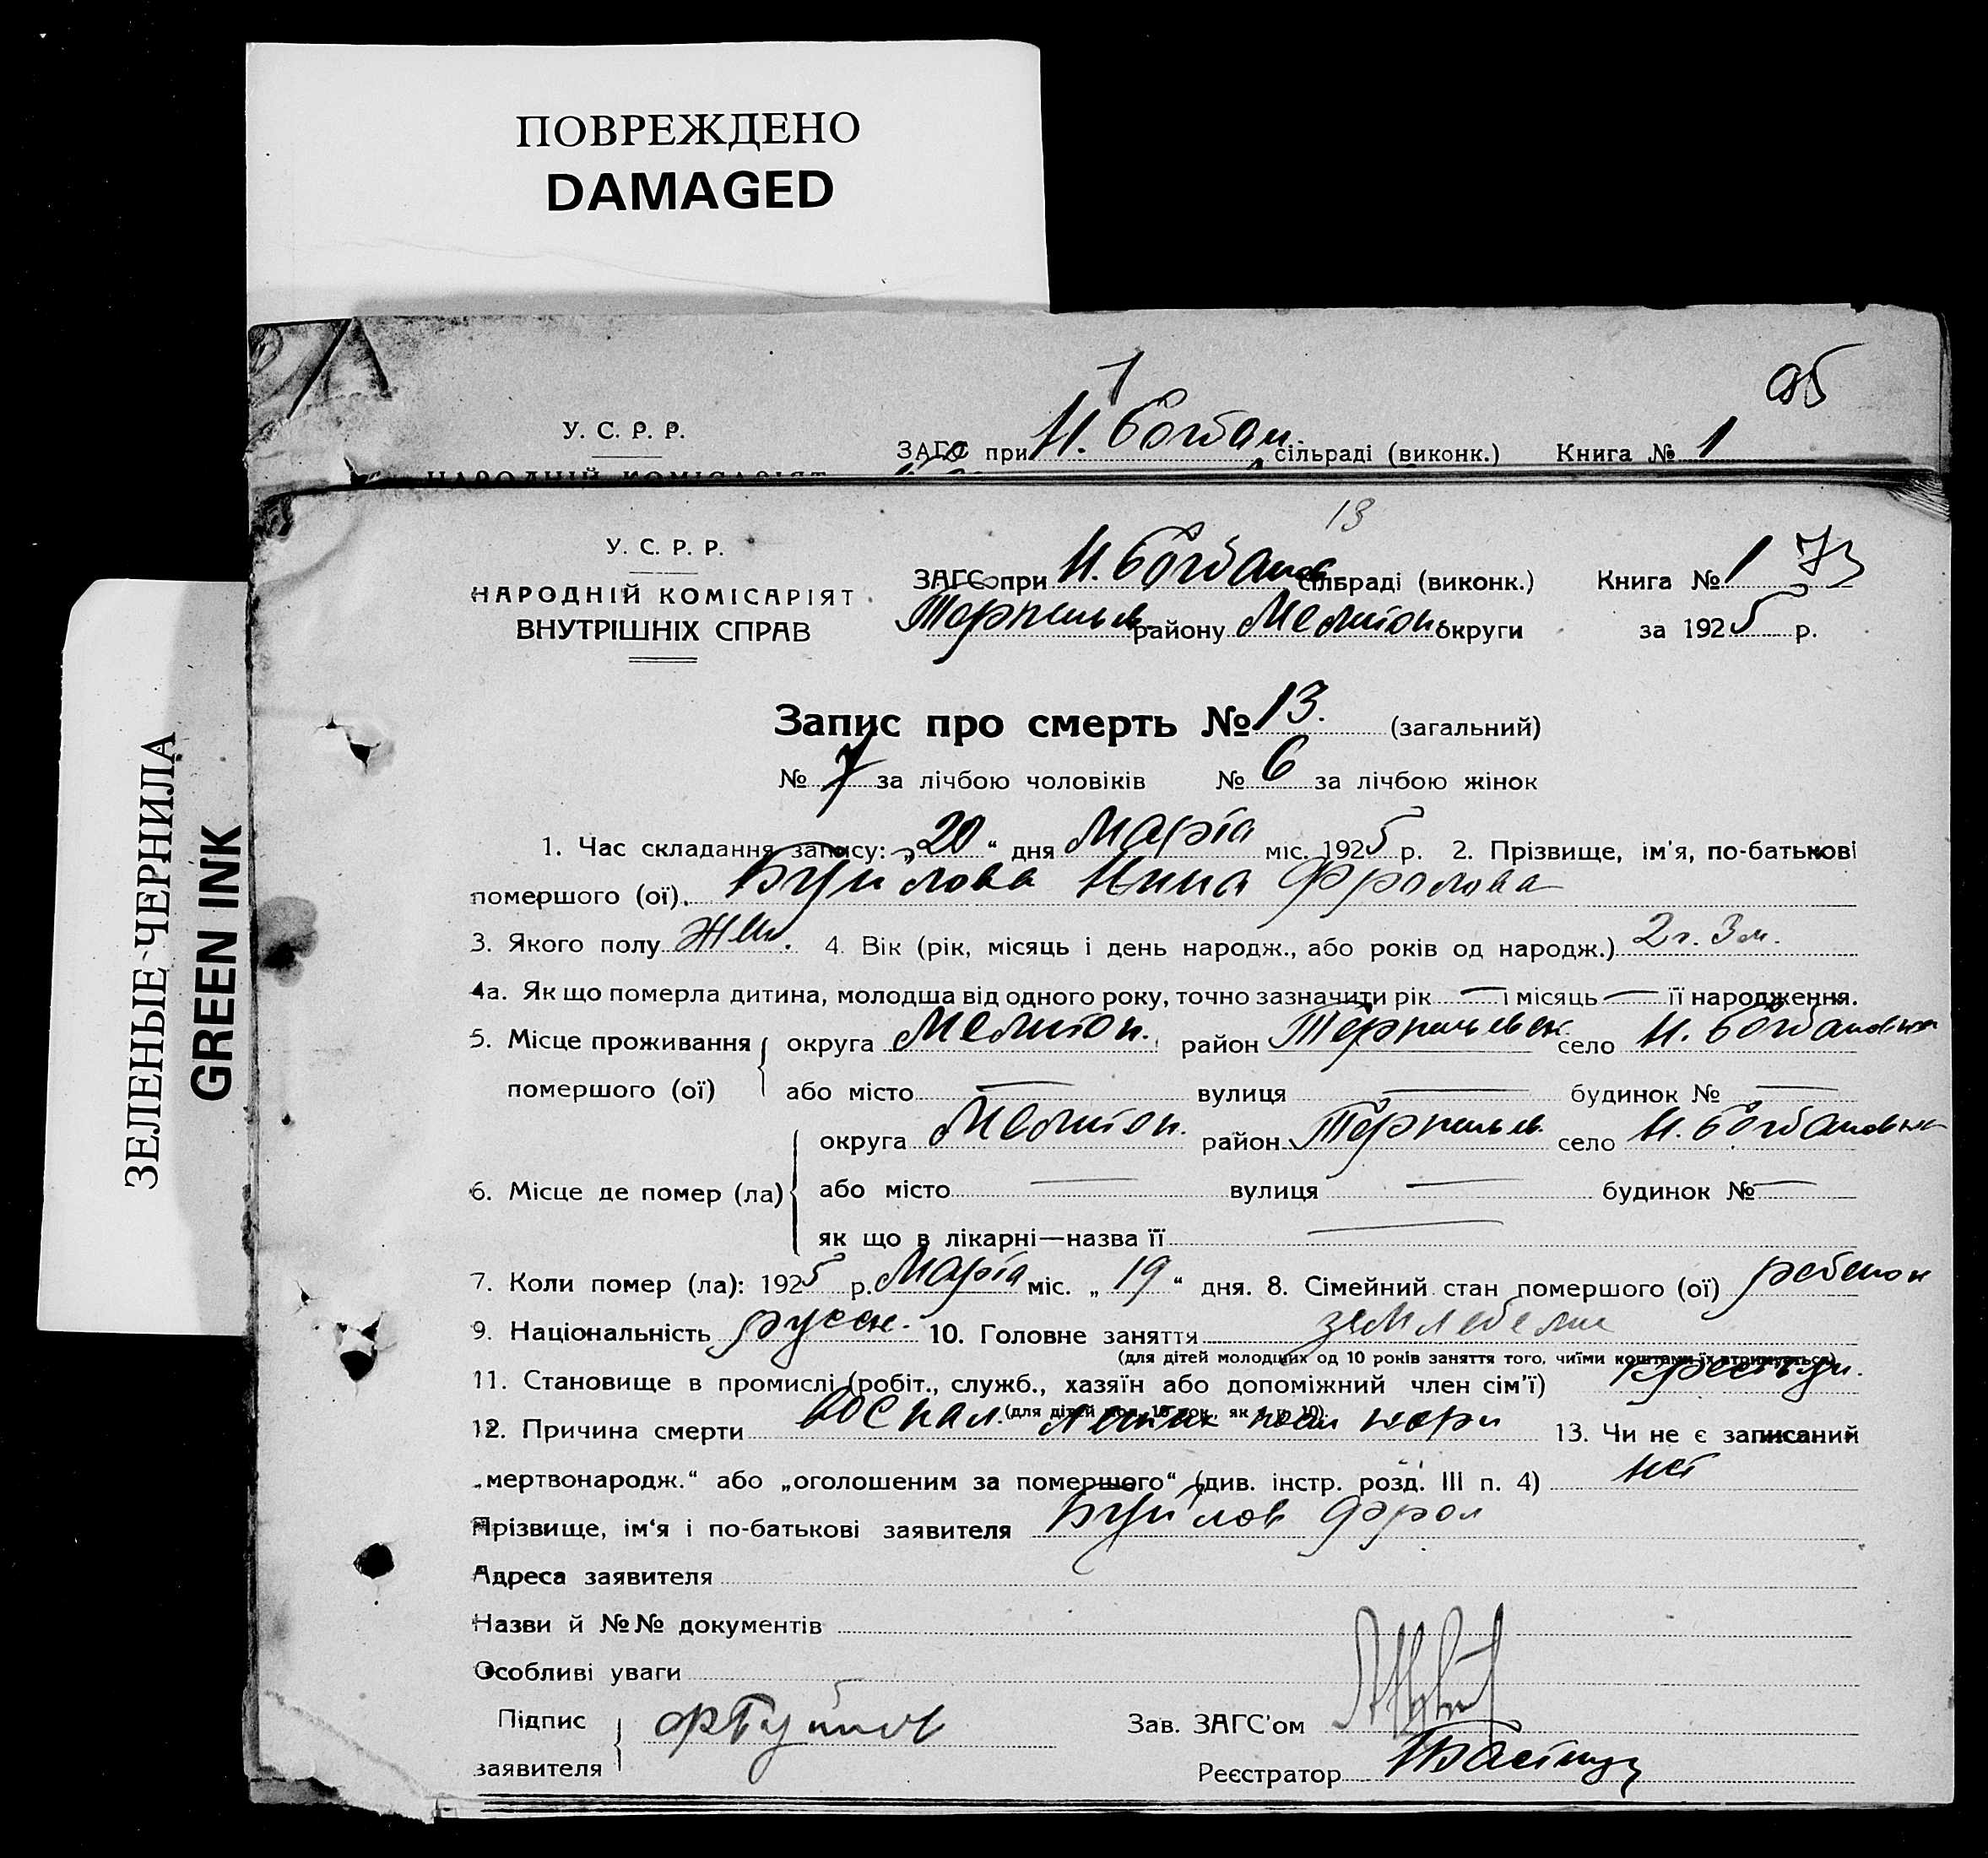 ПОВРЕЖДЕНО
DAMAGED
ЗЕЛЕНЫЕ ЧЕРНИЛА
GREEN INK
95
У. С. Р. Р.
ЗАГС при Н. Богдан. сільраді (виконк.) Книга № 1
НАРОДНІЙ КОМІСАРІЯТ
13
У. С. Р. Р.
НАРОДНІЙ КОМІСАРІЯТ
ВНУТРІШНІХ СПРАВ
ЗАГС при Н. Богданов сільраді (виконк.) Книга № 1 73
Терпеньев району Мелитоп. округи за 1925 р.
Запис про смерть № 13. (загальний)
№ 7 за лічбою чоловіків № 6 за лічбою жінок
1. Час складання запису: „20“ дня Марта міс. 1925 р. 2. Прізвище, ім'я, по-батькові
помершого (ої). Буйлова Нина Фролова
3. Якого полу Жен. 4. Вік (рік, місяць і день народж., або років од народж.) 2 г. 3 м.
4а. Як що померла дитина, молодша від одного року, точно зазначити рік — і місяць — її народження.
5. Місце проживання помершого (ої) округа Мелитоп. район Терпеньевск село Н. Богдановка
або місто — вулиця — будинок № —
6. Місце де помер (ла) округа Мелитоп. район Терпеньев. село Н. Богдановка
або місто — вулиця — будинок № —
як що в лікарні—назва її —
7. Коли помер (ла): 1925 р. Марта міс. „19“ дня. 8. Сімейний стан помершого (ої) ребенок
9. Національність русск. 10. Головне заняття земледелие
(для дітей молодших од 10 років заняття того, чиїми коштами їх втримується)
11. Становище в промислі (робіт., служб., хазяїн або допоміжний член сім'ї) крестьян.
(для дітей мол. 10 рок. як у п. 10)
12. Причина смерти воспал. легких после кори 13. Чи не є записаний
„мертвонародж.“ або „оголошеним за помершого“ (див. інстр. розд. III п. 4) нет
Прізвище, ім'я і по-батькові заявителя Буйлов Фрол
Адреса заявителя
Назви й №№ документів
Особливі уваги
Підпис заявителя Ф Буйлов Зав. ЗАГС'ом
Реєстратор